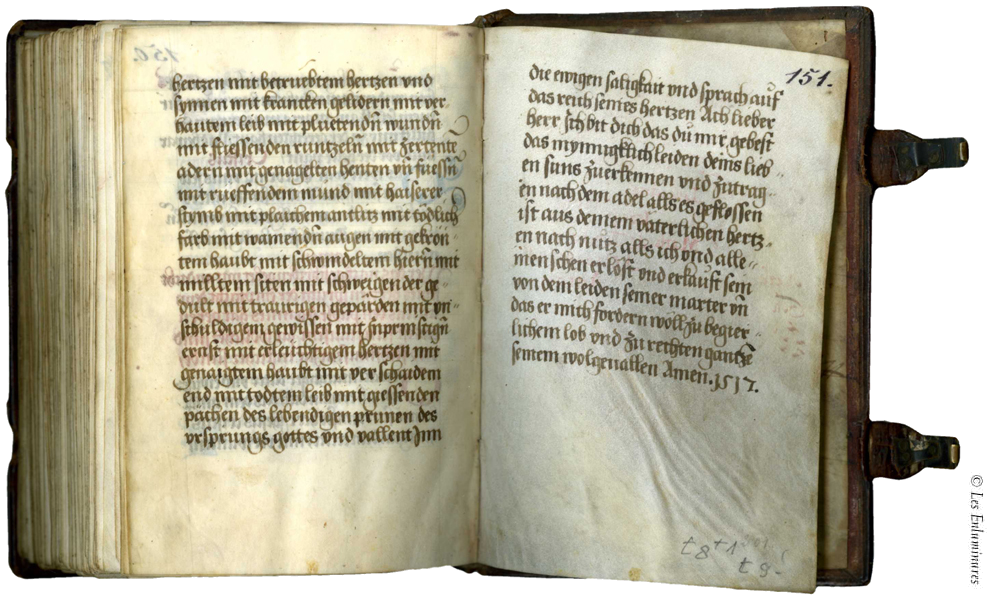 150.
hertzen mit betruebtem hertzen vnd
synnen mit krancken gelidern mit ver
hautem leib mit pluetendn̄ wundn̄
mit fliessenden runtzeln̄ mit zertente
adern mit genagelten henten vn̄ fuessn̄
mit rueffendem mund mit haiserer
stymb mit plaichem antlitz mit tödlich
farb mit wainendn̄ augen mit gekrön
tem haubt mit schwindeltem hiern̄ mit
milltem siten mit schweigen der ge
dult mit traurigen gepärden mit vn
schuldigem gewissen mit
ernst mit erleuchtigem hertzen mit
genaigtem haubt mit verschaidem
end mit todtem leib mit giessenden
pächen des lebendigen prunen des
vrsprungs gottes vnd vallent Inn
151.
die ewigen saligkait vnd sprach auf
das reich seines hertzen Ach lieber
herr Ich bit dich das du mir gebest
das mynnigklich leiden deins lieb
en suns zuerkennen vnd zutrag
en nach dem adel alls es geflossen
ist aus deinem väterlichen hertz
en nach nutz alls ich vnd alle
menschen erlöst vnd erkauft sein
von dem leiden seiner marter vn̄
das er mich fordern woll zu begier
lichem lob vnd zu rechten gantze
seinem wolgeuallen Amen. 1517.
t8 +1
t 9 -
© Les Enluminures